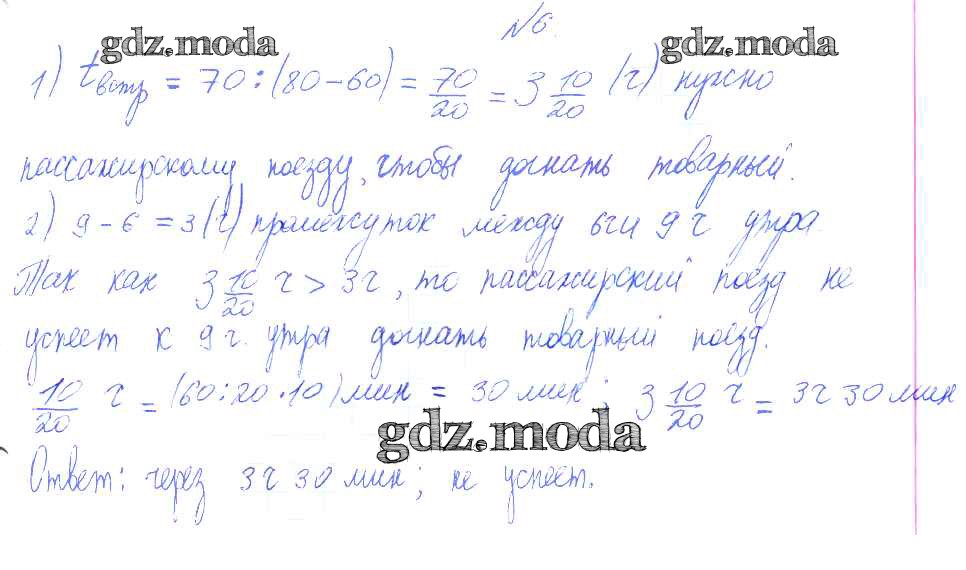 №6.
gdz.moda gdz.moda
1) tвстр = 70 : (80 - 60) = 70/20 = 3 10/20 (ч) нужно
пассажирскому поезду, чтобы догнать товарный.
2) 9 - 6 = 3 (ч) промежуток между 6ч и 9 ч утра.
Так как 3 10/20 ч > 3ч, то пассажирский поезд не
успеет к 9 ч. утра догнать товарный поезд.
10/20 ч = (60 : 20 · 10) мин = 30 мин ; 3 10/20 ч = 3ч 30 мин
gdz.moda
Ответ: через 3 ч 30 мин ; не успеет.